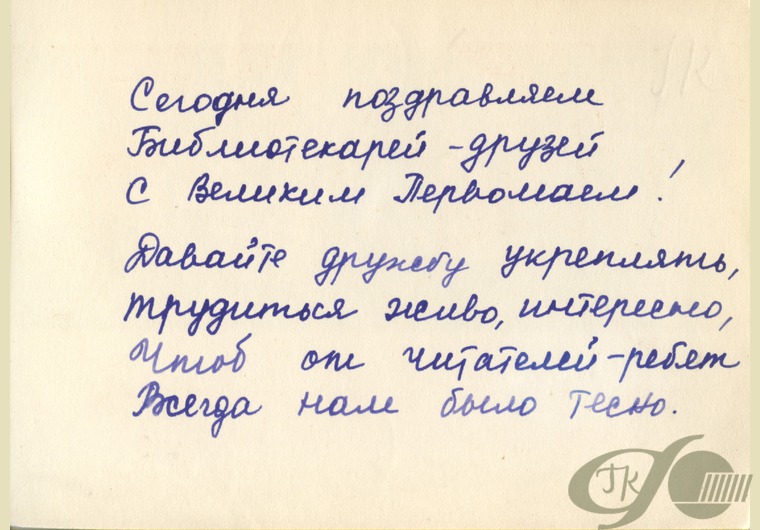 ГК
Сегодня поздравляем
Библиотекарей - друзей
С Великим Первомаем!
Давайте дружбу укреплять,
трудиться живо, интересно,
Чтоб от читателей - ребят
Всегда нам было тесно.
ГК